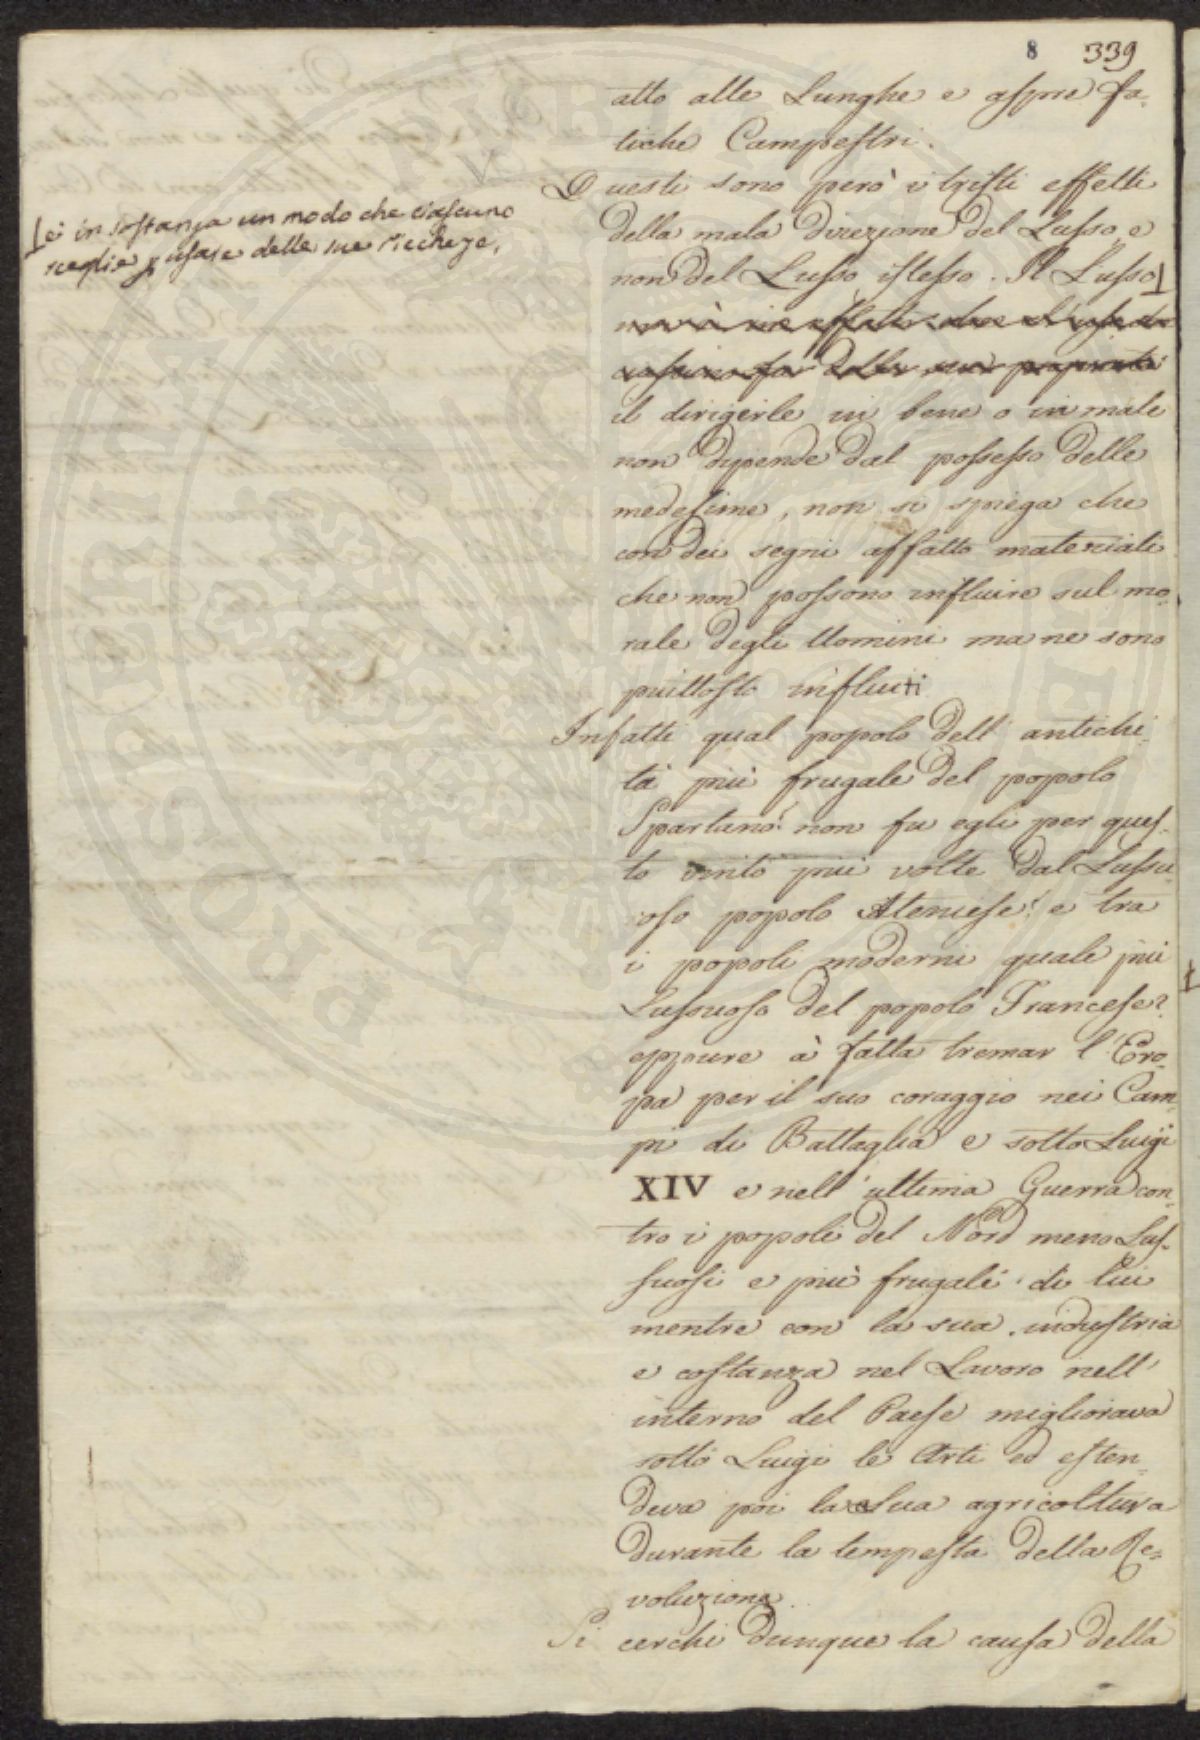 8 339
atto alle Lunghe e aspre fa-
tiche Campestri.
Questi sono però i tristi effetti
della mala direzione del Lusso e
non del Lusso istesso. Il Lusso
è in sostanza un modo che ciascuno
sceglie p usare delle sue ricchezze,
il dirigerle in bene o in male
non dipende dal possesso delle
medesime, non si spiega che
con dei segni affatto materiali
che non possono influire sul mo-
rale degli Uomini ma ne sono
piuttosto influiti
Infatti qual popolo dell' antichi-
tà più frugale del popolo
Spartano? non fu egli per ques-
to vinto più volte dal Lussu-
oso popolo Ateniese? e tra
i popoli moderni quale più
Lussuoso del popolo Francese?
eppure à fatta tremar l'Ero-
pa per il suo coraggio nei Cam-
pi di Battaglia e sotto Luigi
XIV e nell' ultima Guerra con-
tro i popoli del Nord meno Lus-
suosi e più frugali di lui
mentre con la sua industria
e costanza nel Lavoro nell'
interno del Paese migliorava
sotto Luigi le Arti ed esten-
deva poi la sua agricoltura
durante la tempesta della Re-
voluzione.
Si cerchi dunque la causa della